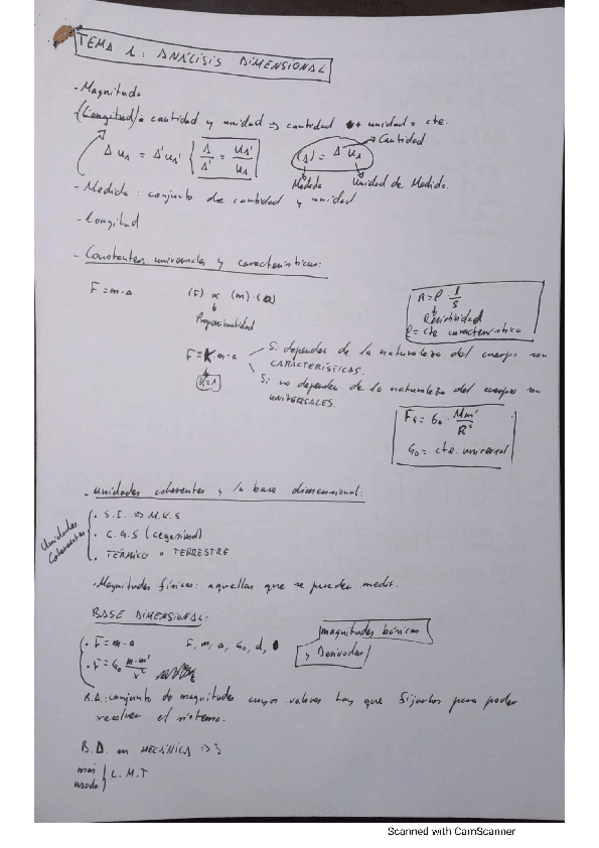 TEMA 1: ANÁLISIS DIMENSIONAL
- Magnitud
(Longitud): cantidad y unidad => cantidad + unidad = cte.
Δ u_A = Δ' u_A' { A/A' = u_A'/u_A (A) = Δ' u_A → Cantidad
Medida Unidad de Medida.
- Medida: conjunto de cantidad y unidad
- Longitud
- Constantes universales y características:
F = m·a (F) ∝ (m)·(a)
Proporcionalidad
R = ρ l/S
Resistividad
ρ = cte característica
F = K m·a Si dependen de la naturaleza del cuerpo son
CARACTERÍSTICAS.
K=1
Si no dependen de la naturaleza del cuerpo son
UNIVERSALES.
F_G = G_0 · Mm'/R²
G_0 = cte. universal
- Unidades coherentes y la base dimensional:
Unidades Coherentes
· S.I. => M.K.S
· C.G.S (cegesimal)
· TÉRMICO o TERRESTRE
· Magnitudes físicas: aquellas que se pueden medir.
BASE DIMENSIONAL:
· F = m·a F, m, a, G_0, d,
· F = G_0 m·m'/r²
magnitudes básicas
y Derivadas
B.D.: conjunto de magnitudes cuyos valores hay que fijarlos para poder
resolver el sistema.
B.D. en MECÁNICA => 3
más usada } L.M.T
Scanned with CamScanner